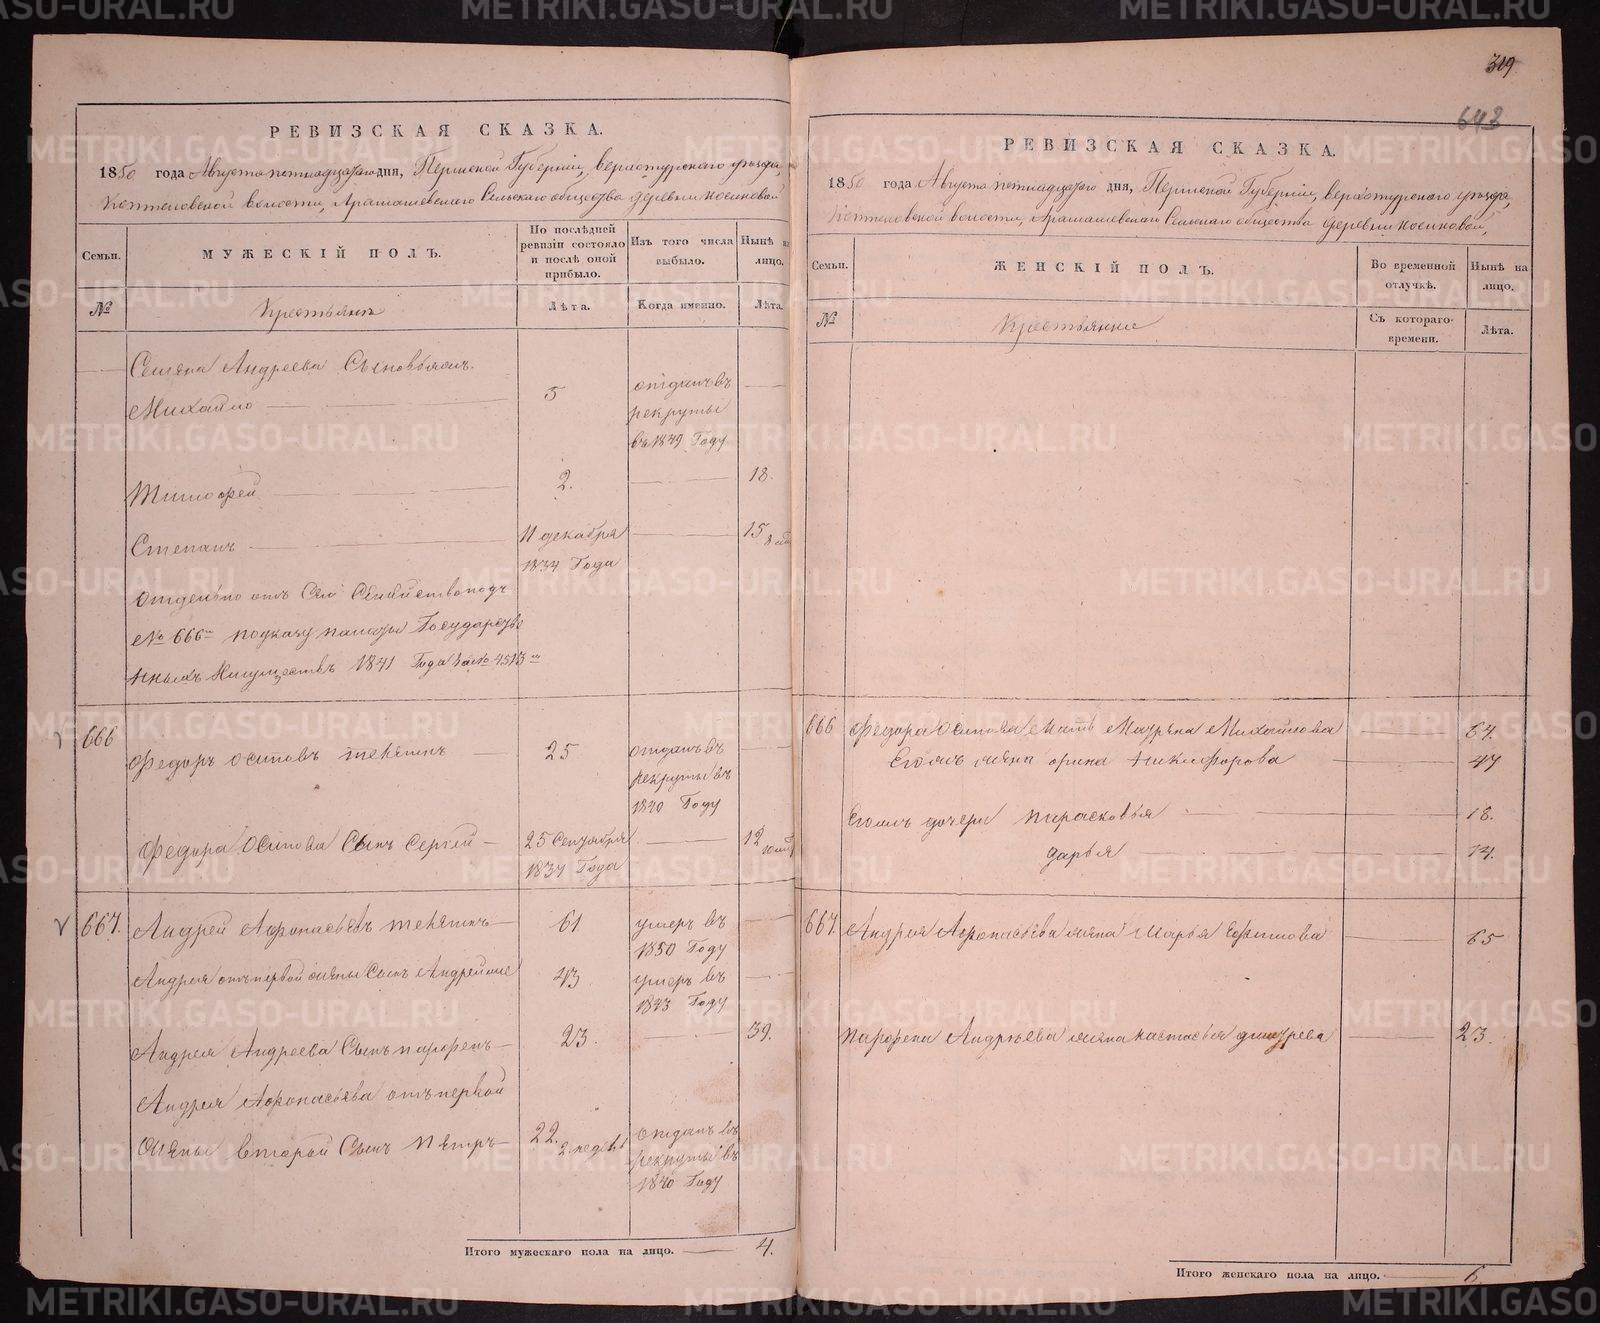 319
643
РЕВИЗСКАЯ СКАЗКА.
1850 года Августа пятнадцатого дня, Пермской Губернии, верхотурского уезда,
Коптеловской волости, Арамашевского Сельского общества деревни Косиковой
Семьи.
МУЖЕСКІЙ ПОЛЪ.
По послѣдней ревизіи состояло и послѣ оной прибыло.
Изъ того числа выбыло.
Нынѣ на лицо.
№
Крестьянъ
Лѣта.
Когда именно.
Лѣта.
Семена Андреева Сыновьямъ
Михайло 5 отданъ въ
рекруты
въ 1849 Году
Тимофей 2. 18.
Степанъ 11 декабря 15
1834 Года
отдельно отъ Сей Семейство подъ
№ 666 Государстве
нныхъ Имуществъ 1841 Года за № 4513
666 Федоръ Осиповъ 25 отданъ въ
рекруты въ
1840 Году
Федора Осипова Сынъ Сергей 25 Сентября 12
1837 Года
667. Андрей Афонасьевъ 61 умеръ въ
1850 Году
Андрея отъ первой жены Сынъ Андрей 43 умеръ въ
1843 Году
Андрея Андреева Сынъ парфенъ 23. 39.
Андрея Афонасьева отъ первой
жены вторай Сынъ Пётръ 22. отданъ въ
рекруты въ
1840 Году
Итого мужескаго пола на лицо. 4.
РЕВИЗСКАЯ СКАЗКА.
1850 года Августа пятнадцатого дня, Пермской Губернии, верхотурского уезда,
Коптеловской волости, Арамашевского Сельского общества деревни Косиковой,
Семьи.
ЖЕНСКІЙ ПОЛЪ.
Во временной отлучкѣ.
Нынѣ на лицо.
№
Крестьянки
Съ котораго времени.
Лѣта.
666 Федора Осипова Мать Михайлова 64.
Егожъ жена орина Никифорова 47
Егожъ дочери парасковья 18.
дарья 14.
667. Андрея Афонасьева жена Марья Ефимова 65
парфена Андреева жена настасья 23.
Итого женскаго пола на лицо. 6